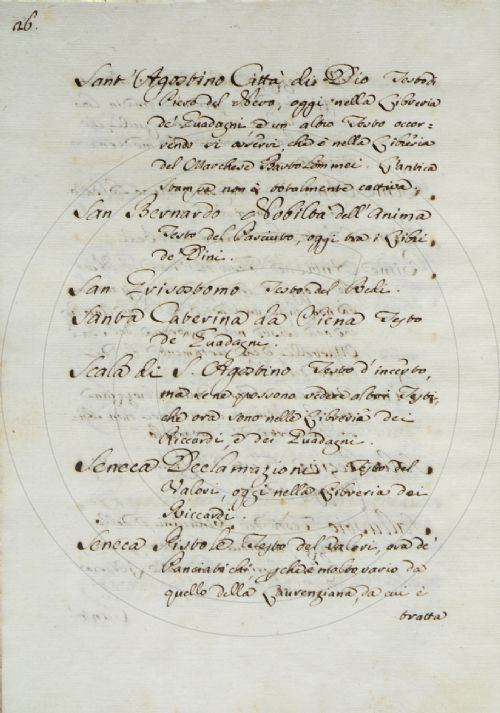 26.
Sant' Agostino Città di Dio Testo di
Piero del Nero, oggi nella Libreria
de' Guadagni e un altro Testo occor-
rendo vi è nella Libreria
del Marchese Bartolommei. L'antica
Stampa non è totalmente cattiva.
San Bernardo Nobiltà dell'Anima
Testo del Pasciuto, oggi tra i Libri
de Dini.
San Grisostomo Testo del Redi.
Santa Caterina da Siena Testo
de Guadagni.
Scala di S. Agostino Testo d'incerto,
ma se ne possono vedere altri Testi,
che ora sono nelle Librerie dei
Riccardi e dei Guadagni.
Seneca Declamazioni Testo del
Valori, oggi nella Libreria dei
Riccardi.
Seneca Pistole Testo del Valori, ora de'
Panciatichi, che è molto vario da
quello della Laurenziana, da cui è
tratta